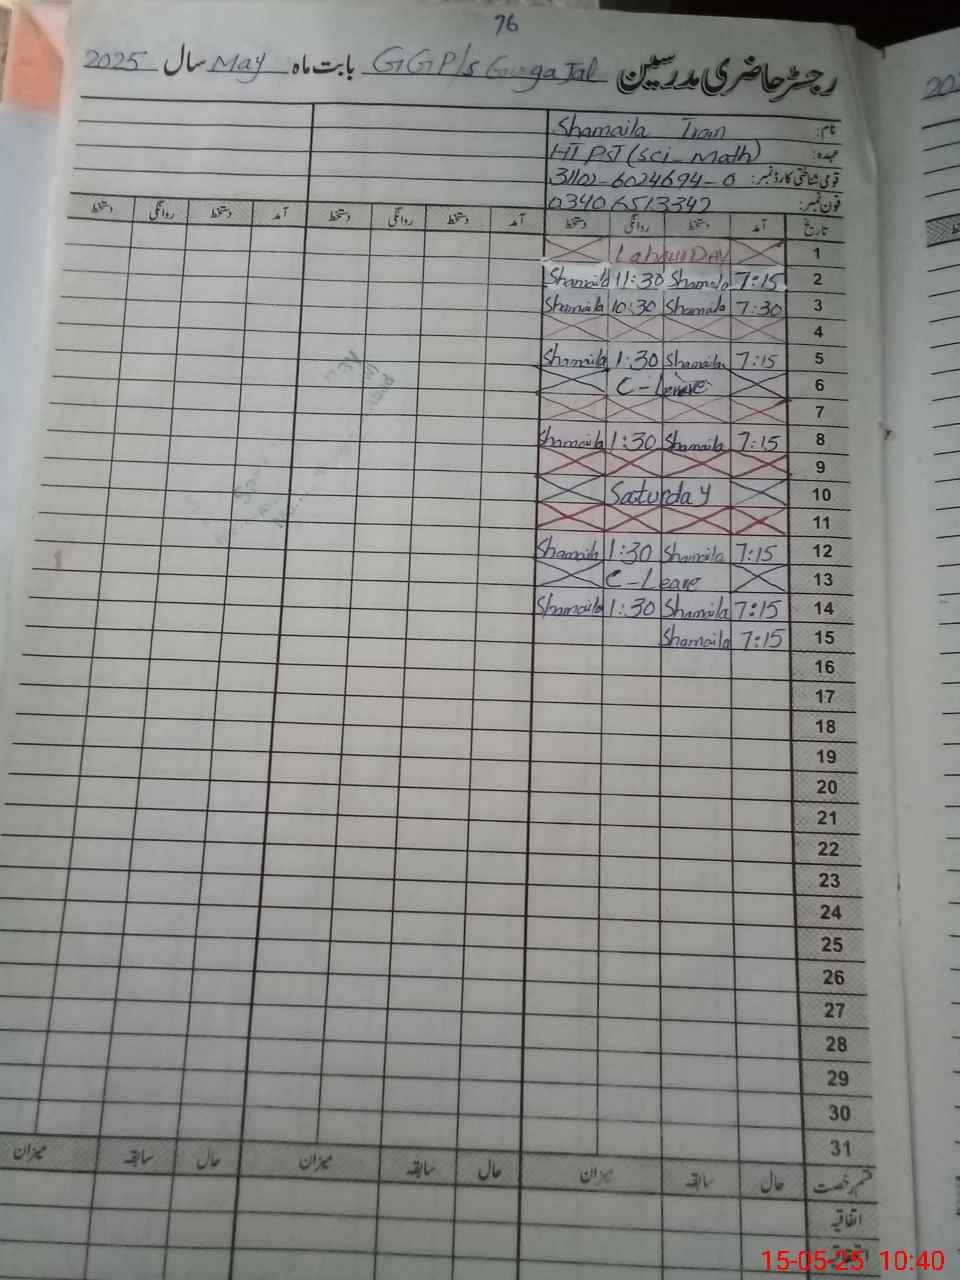 76
رجسٹر حاضری مدرسین GGP/s Gunga Jal بابت ماہ May سال 2025
نام: Shamaila Iram
عہدہ: HT PST (Sci-Math)
قومی شناختی کارڈ نمبر: 31102-6024694-0
فون نمبر: 03406513342
تاریخ آمد دستخط روانگی دستخط آمد دستخط روانگی دستخط آمد دستخط روانگی دستخط
Labour Day 1
Shamaila 11:30 Shamaila 7:15 2
Shamaila 10:30 Shamaila 7:30 3
4
Shamaila 1:30 Shamaila 7:15 5
C-Leave 6
7
Shamaila 1:30 Shamaila 7:15 8
9
Saturday 10
11
Shamaila 1:30 Shamaila 7:15 12
C-Leave 13
Shamaila 1:30 Shamaila 7:15 14
Shamaila 7:15 15
16
17
18
19
20
21
22
23
24
25
26
27
28
29
30
31
قسم رخصت حال سابقہ میزان حال سابقہ میزان حال سابقہ میزان
اتفاقیہ
15-05-25 10:40